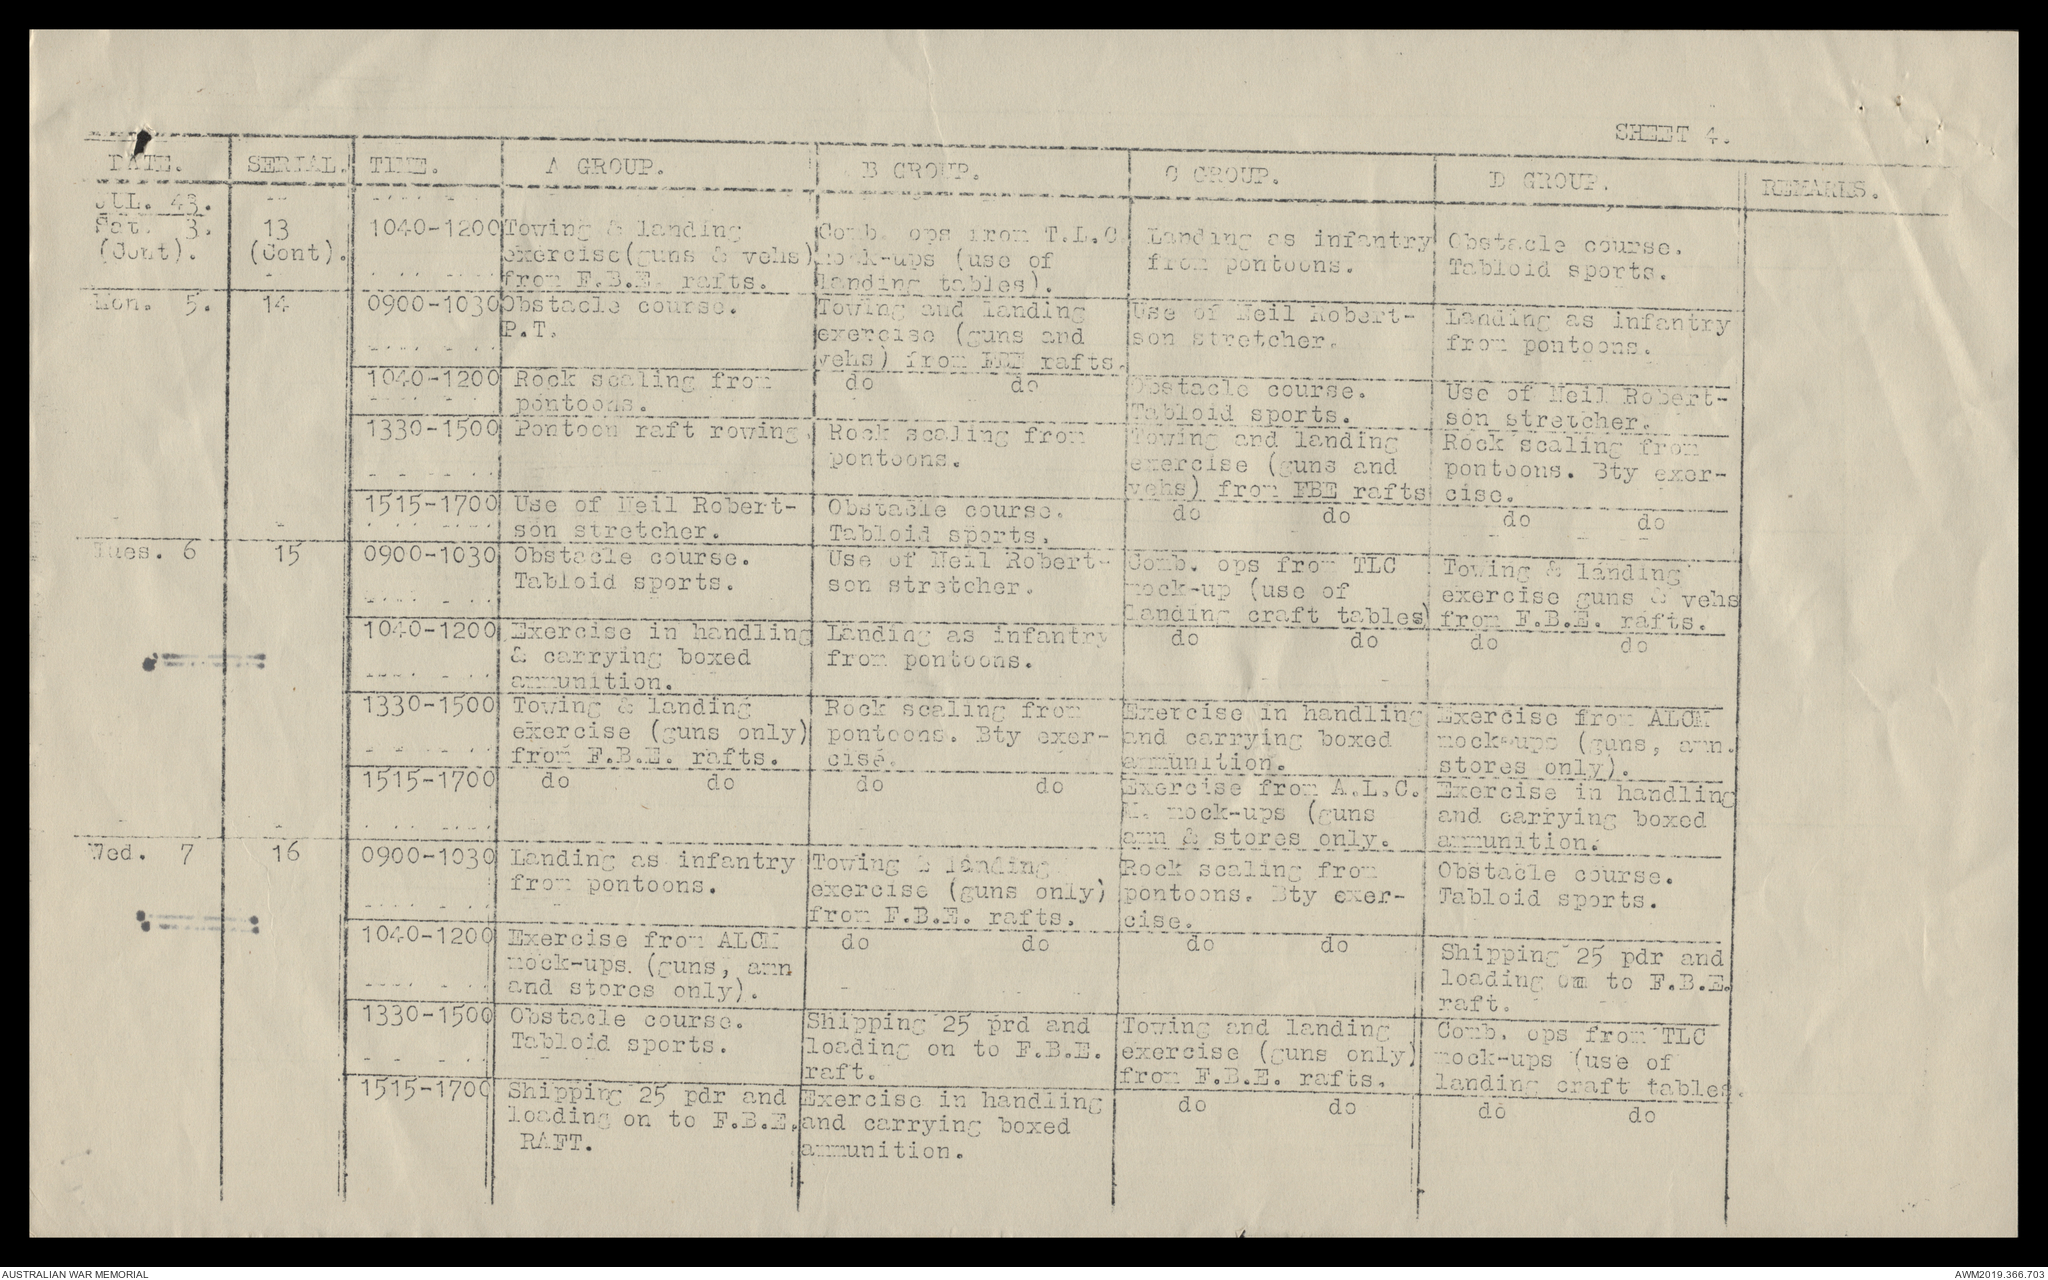 SHEET 4.
DATE. SERIAL. TIME. A GROUP. B GROUP. C GROUP. D GROUP. REMARKS.
JUL. 43.
Sat. 3. 13 1040-1200 Towing & landing Comb. ops from T.L.C. Landing as infantry Obstacle course.
(Cont). (Cont). exercise(guns & vehs) mock-ups (use of from pontoons. Tabloid sports.
from F.B.E. rafts. landing tables).
Mon. 5. 14 0900-1030 Obstacle course. Towing and landing Use of Neil Robert- Landing as infantry
P.T. exercise (guns and son stretcher. from pontoons.
vehs) from FBE rafts.
1040-1200 Rock scaling from do do Obstacle course. Use of Neil Robert-
pontoons. Tabloid sports. son stretcher.
1330-1500 Pontoon raft rowing. Rock scaling from Towing and landing Rock scaling from
pontoons. exercise (guns and pontoons. Bty exer-
vehs) from FBE rafts cise.
1515-1700 Use of Neil Robert- Obstacle course. do do do do
son stretcher. Tabloid sports.
Tues. 6 15 0900-1030 Obstacle course. Use of Neil Robert- Comb. ops from TLC Towing & landing
Tabloid sports. son stretcher. mock-up (use of exercise guns & vehs
landing craft tables) from F.B.E. rafts.
1040-1200 Exercise in handling Landing as infantry do do do do
& carrying boxed from pontoons.
ammunition.
1330-1500 Towing & landing Rock scaling from Exercise in handling Exercise from ALCM
exercise (guns only) pontoons. Bty exer- and carrying boxed mock-ups (guns, amn.
from F.B.E. rafts. cise. ammunition. stores only).
1515-1700 do do do do Exercise from A.L.C. Exercise in handling
M. mock-ups (guns and carrying boxed
amn & stores only. ammunition.
Wed. 7 16 0900-1030 Landing as infantry Towing & landing Rock scaling from Obstacle course.
from pontoons. exercise (guns only) pontoons. Bty exer- Tabloid sports.
from F.B.E. rafts. cise.
1040-1200 Exercise from ALCM do do do do Shipping 25 pdr and
mock-ups. (guns, amn loading on to F.B.E.
and stores only). raft.
1330-1500 Obstacle course. Shipping 25 prd and Towing and landing Comb. ops from TLC
Tabloid sports. loading on to F.B.E. exercise (guns only) mock-ups (use of
raft. from F.B.E. rafts. landing craft tables.
1515-1700 Shipping 25 pdr and Exercise in handling do do do do
loading on to F.B.E. and carrying boxed
RAFT. ammunition.
AUSTRALIAN WAR MEMORIAL AWM2019.366.703